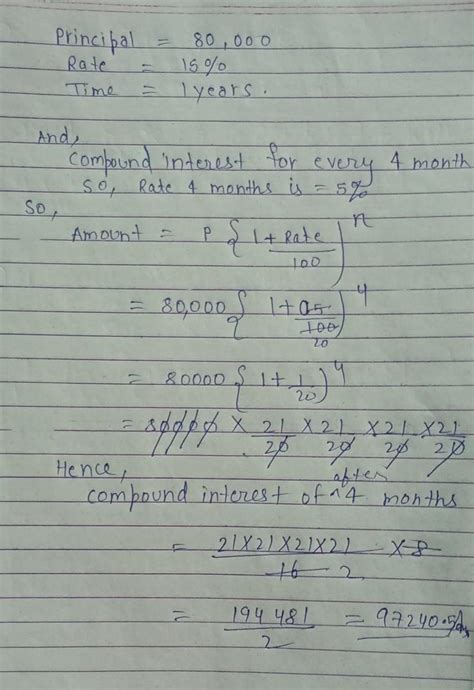 Principal = 80,000
Rate = 15%
Time = 1 years.
And,
compound interest for every 4 month
so, Rate 4 months is = 5%
so,
Amount = P { 1 + Rate/100 )^n
= 80,000 { 1 + 05/100 20 )^4
= 80000 { 1 + 1/20 )^4
= 80000 × 21/20 × 21/20 × 21/20 × 21/20
Hence,
compound interest of ^after 4 months
= 21×21×21×21/16 2 × 8
= 194 481/2 = 97240.5